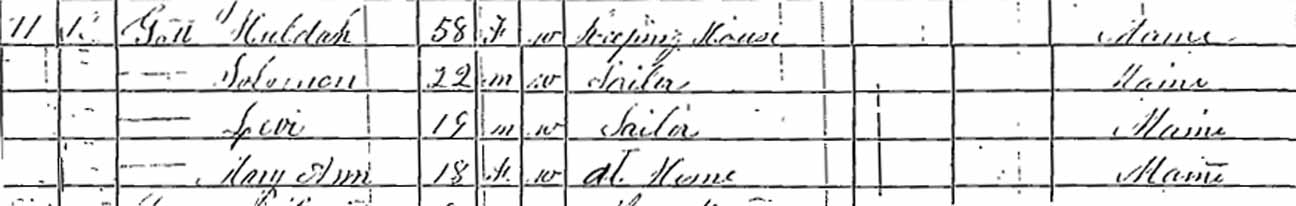 11 Gott Huldah 58 F W Keeping House Maine
—— Solomon 22 M W Sailor Maine
—— Levi 19 M W Sailor Maine
—— Mary Ann 18 F W At Home Maine